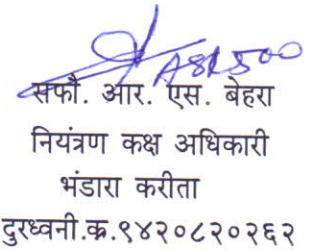 सफौ. आर. एस. बेहरा
नियंत्रण कक्ष अधिकारी
भंडारा करीता
दुरध्वनी.क्र.९४२०८२०२६२